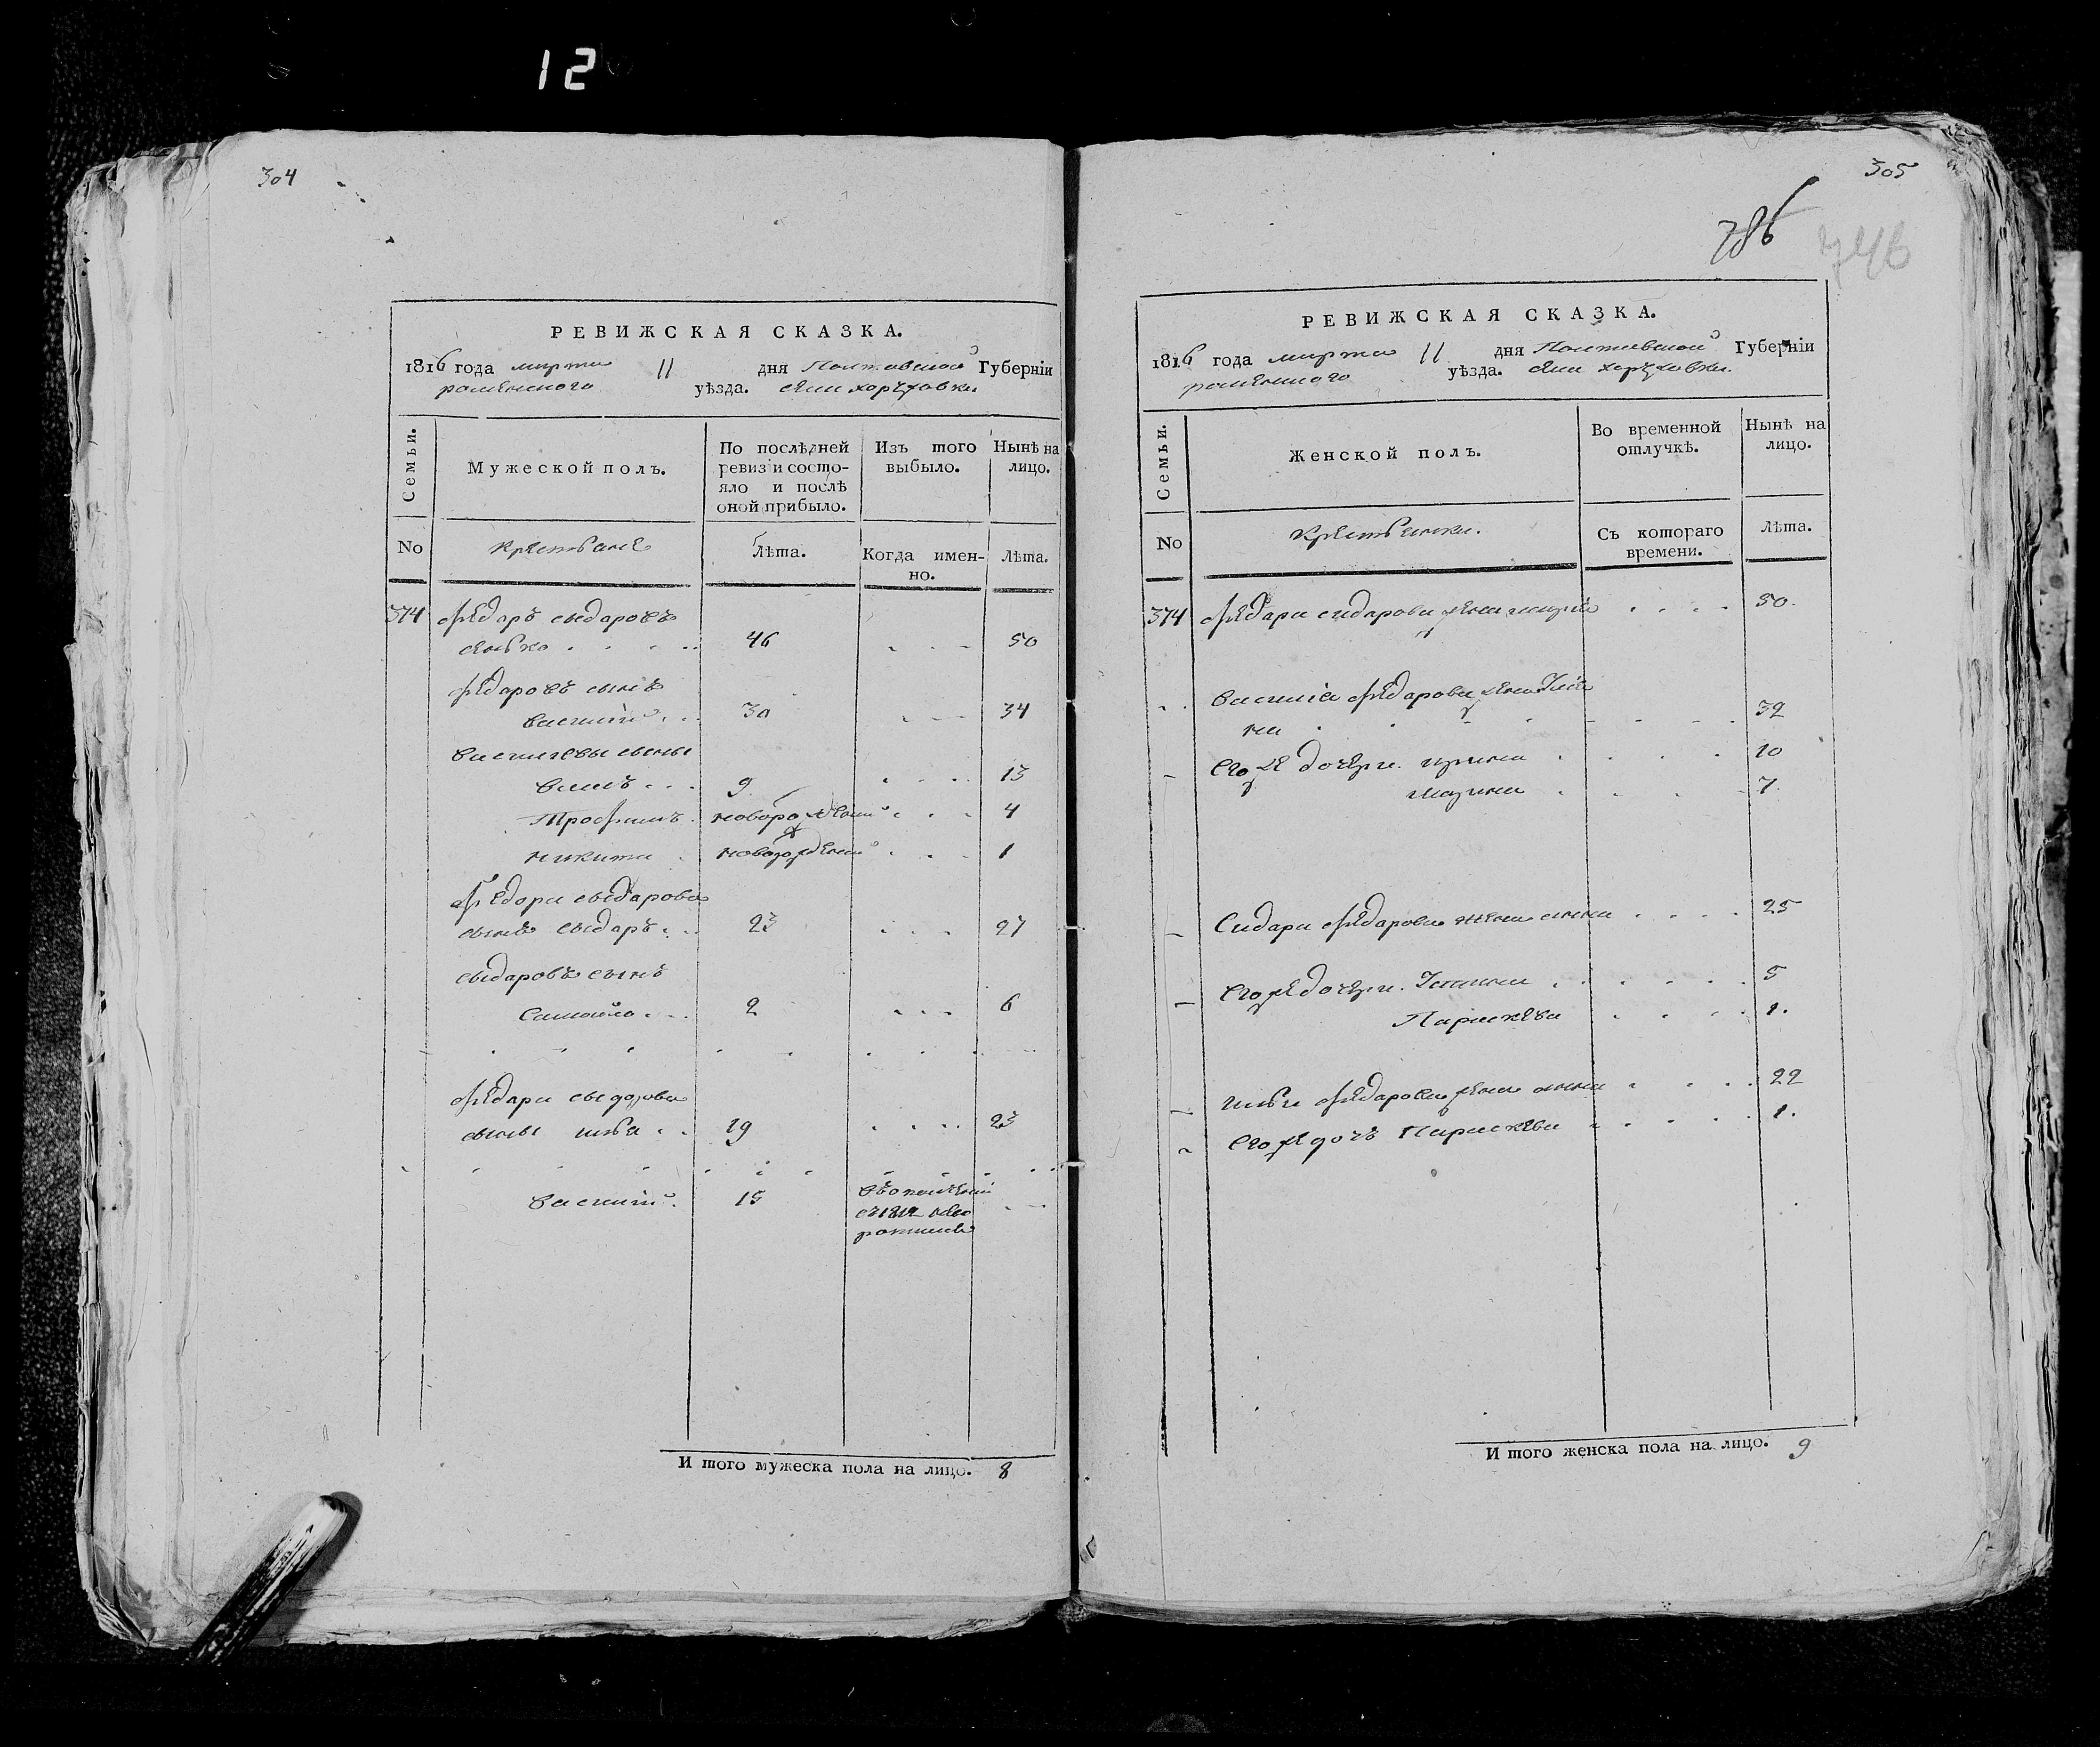 12
304
РЕВИЖСКАЯ СКАЗКА.
1816 года марта 11 дня Полтавской Губерніи
роменского уѣзда. села хоружовки
Семьи.
Мужеской полъ.
По послѣдней ревизіи состояло и послѣ оной прибыло.
Изъ того выбыло.
Нынѣ на лицо.
No
крестьяне
Лѣта.
Когда именно.
Лѣта.
374 Федаръ сыдаровъ
46 50
Федаровъ сынъ
Василий 30 34
Василиевы сыны
9 13
Трофимъ новорождений 4
никита новорождений 1
Федора сыдарова
сынъ сыдаръ 23 27
сыдаровъ сынъ
Самойло 2 6
Федара сыдорова
сыны илья 19 23
Василий 15
И того мужеска пола на лицо. 8
305
786
746
РЕВИЖСКАЯ СКАЗКА.
1816 года марта 11 дня Полтавской Губерніи
роменского уѣзда. села хоружовки.
Семьи.
Женской полъ.
Во временной отлучкѣ.
Нынѣ на лицо.
No
крестьянки.
Съ котораго времени.
Лѣта.
374 Федара сидарова жена 50.
Василіа Федарова жена
на 32
Его же дочери. ирина 10
7.
Сидара Федарова жена анна 25
Его же дочери. 5
Параскева 1.
ильи Федарова жена анна 22
Его же дочь Параскева 1.
И того женска пола на лицо. 9